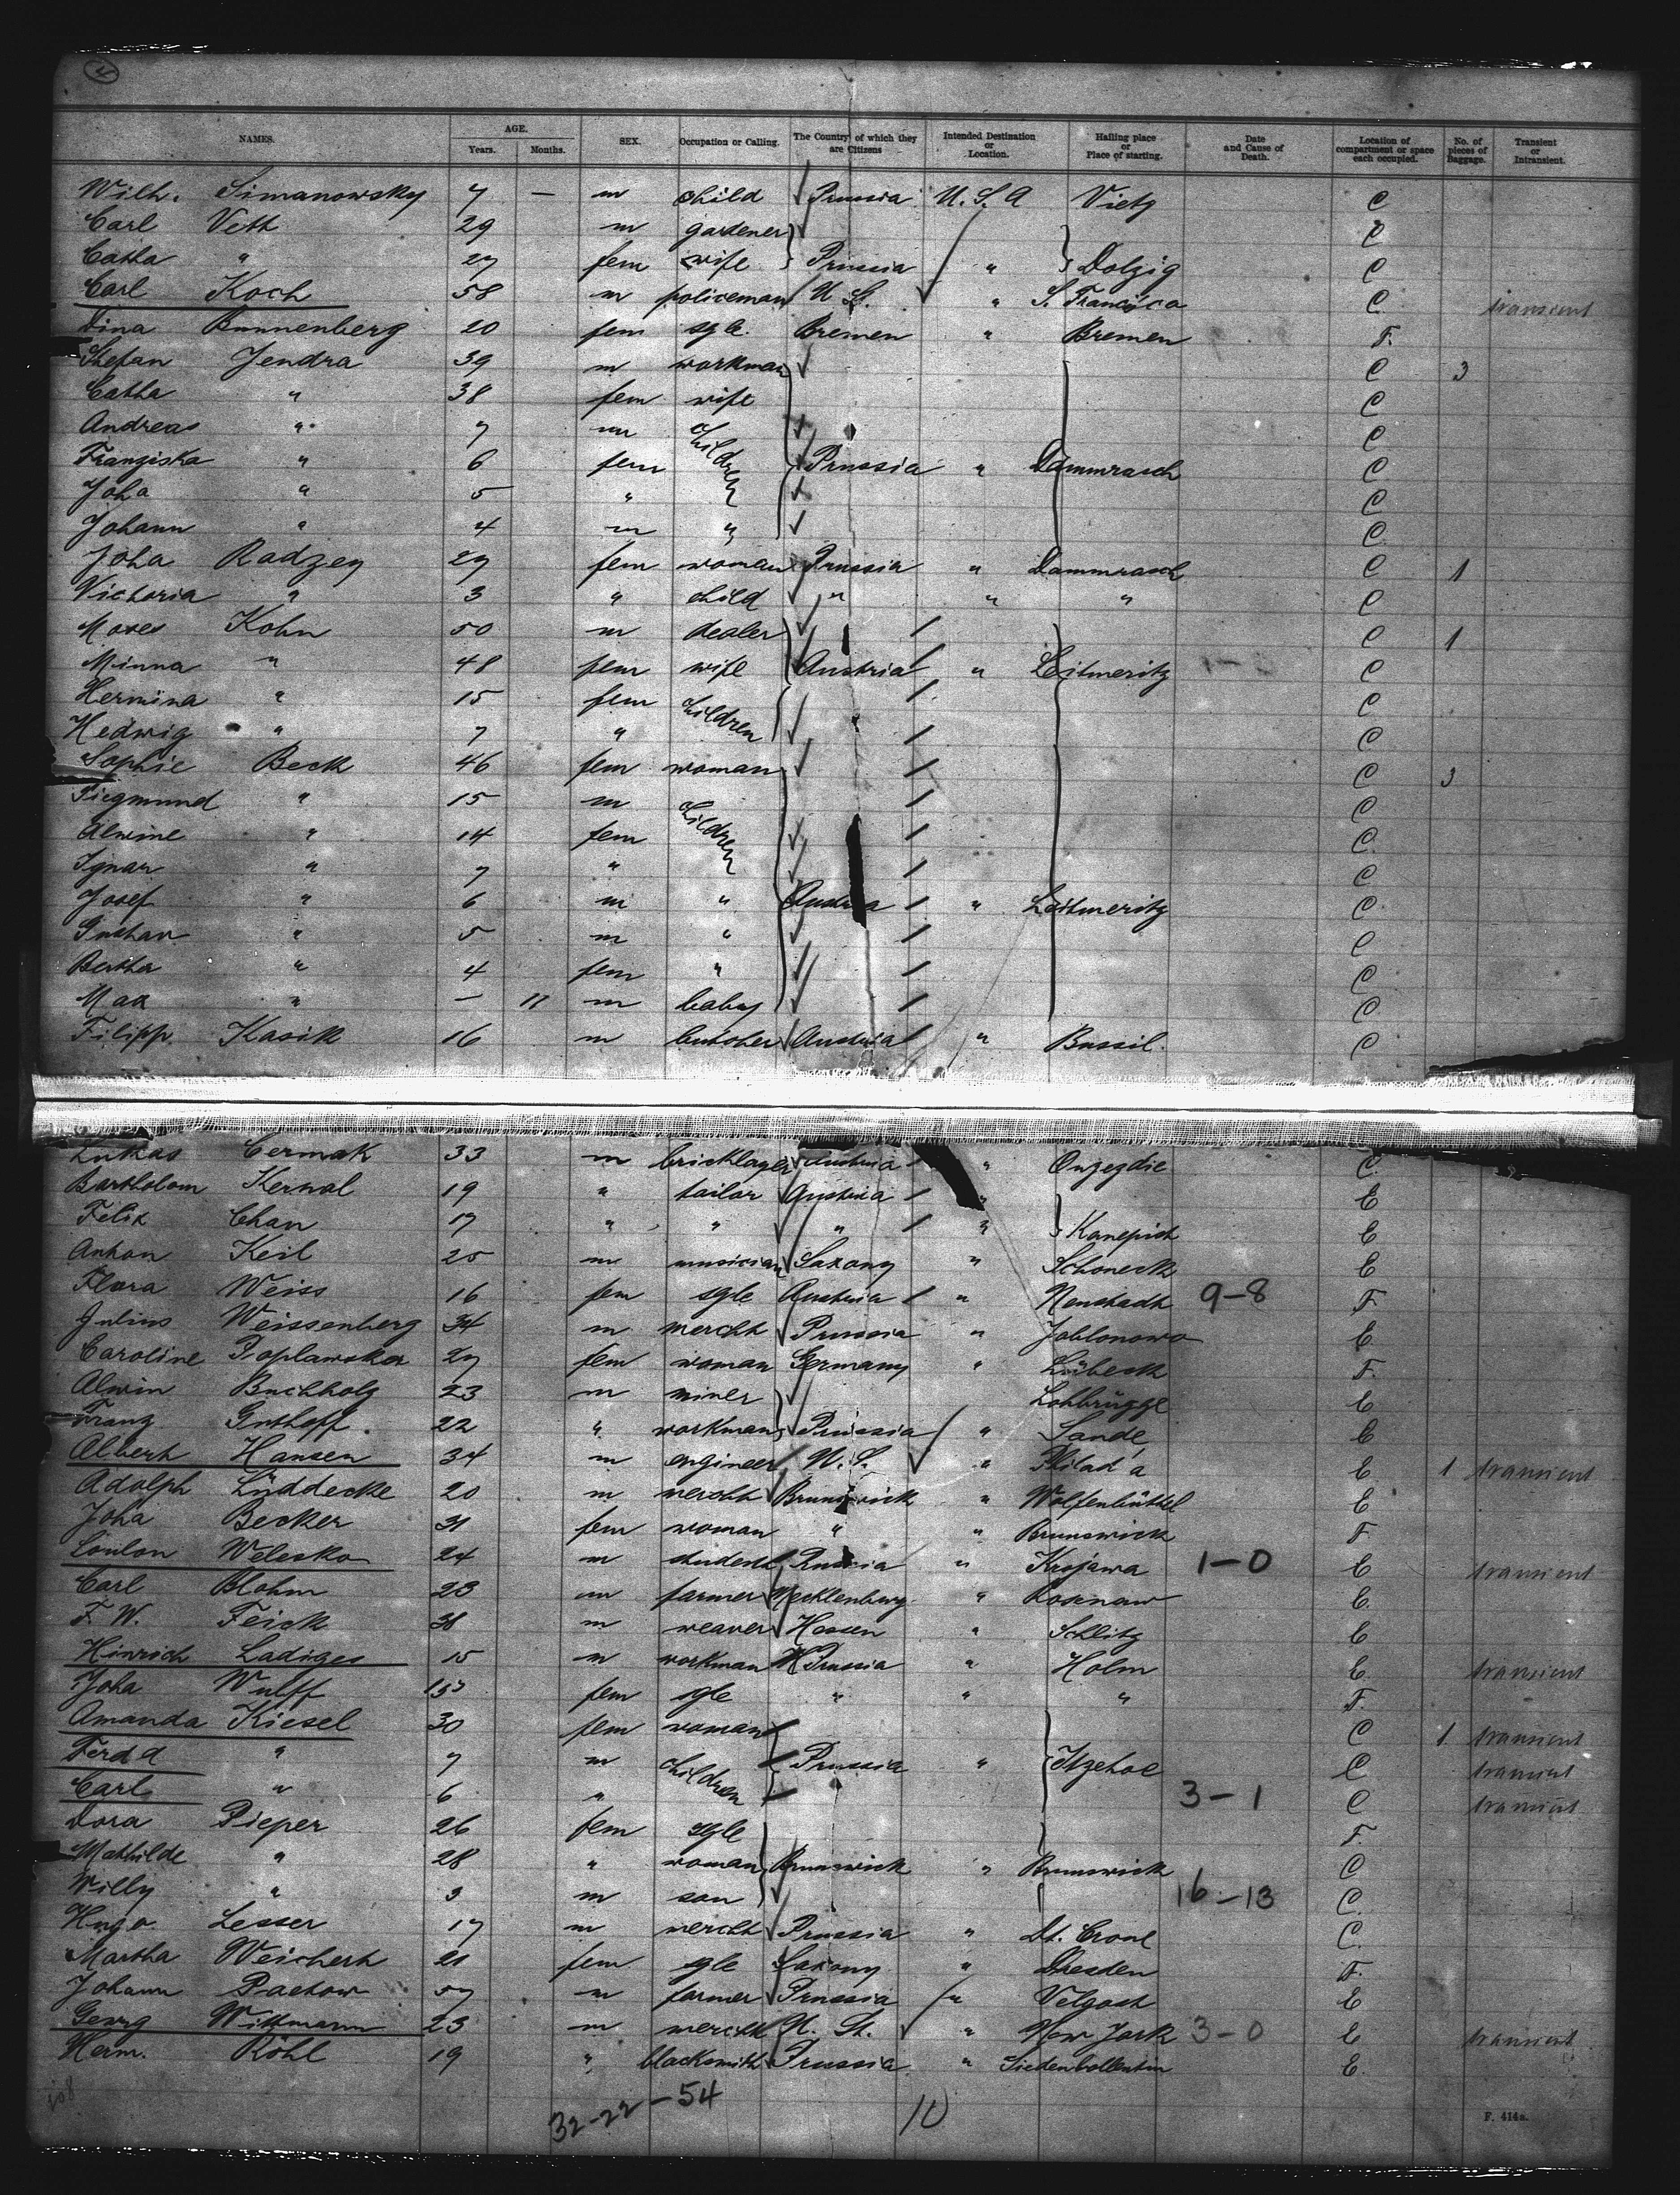 4
NAMES. AGE. Years. Months. SEX. Occupation or Calling. The Country of which they are Citizens Intended Destination or Location. Hailing place or Place of starting. Date and Cause of Death. Location of compartment or space each occupied. No. of pieces of Baggage. Transient or Intransient.
Wilh. Simanowsky 7 — m child Prussia U.S.A Vietz C
Carl Veth 29 m gardener C
Catha " 27 fem wife Prussia " Dolzig C
Carl Koch 58 m policeman U S. " S. Francisco C. transient
Dina Bunnenberg 20 fem sgle. Bremen " Bremen F.
Stefan Jendra 39 m workman C 3
Catha " 38 fem wife C
Andreas " 7 m children C
Franziska " 6 fem Prussia " Dammrasch C
Joha " 5 " C
Johann " 4 m " C
Joha Radzey 27 fem woman Prussia " Dammrasch C 1
Victoria " 3 " child " " " C
Moses Kohn 50 m dealer C 1
Minna " 48 fem wife Austria " Leitmeritz C
Hermina " 15 fem children C
Hedwig " 7 " C
Sophie Beck 46 fem woman C 3
Siegmund " 15 m children C
Alwine " 14 fem C
Ignar " 7 " C
Josef " 6 m " Austria " Leitmeritz C
Gustav " 5 m " C
Bertha " 4 fem " C
Max " — 11 m baby C
Filipp Kasik 16 m butcher Austria " Bussil. C
Lukas Cermak 33 m bricklayer Austria " Onzezdic C.
Bartholom Kernal 19 " tailor Austria " E
Felix Chan 17 " " " " Kanepish E
Anton Keil 25 m musician Saxony " Schoneck E
Flora Weiss 16 fem sgle Austria " Neustadt 9-8 F
Julius Weissenberg 34 m mercht Prussia " Jablonowo E
Caroline Poplawska 27 fem woman Germany " Lübeck F.
Alwin Buchholz 23 m miner Lohbrügge E
Franz Guthoff 22 " workman Prussia " Sande E
Albert Hansen 34 m engineer U. S. " Philad a E 1 transient
Adolph Lüddecke 20 m mercht Brunswick " Wolfenbüttel E
Joha Becker 31 fem woman " " Brunswick F
Welesko 24 m student Russia " Krojawa 1-0 E transient
Carl Blohm 23 m farmer Mecklenburg " Rosenaw E
F. W. Feick 31 m weaver Hessen " Schlitz E
Hinrich Ladiges 15 m workman Prussia " Holm E transient
Joha Wulff 15 fem sgle " " " F.
Amanda Kiesel 30 fem woman C 1 transient
Ferd d " 7 m children Prussia " Itzehoe C transient
Carl " 6 " 3-1 C transient
Dora Pieper 26 fem sgle F.
Mathilde " 28 " woman Brunswick " Brunswick C
Willy " 3 m son 16-13 C.
Hugo Lesser 17 m mercht Prussia " Dt. Crone C.
Martha Weichert 21 fem sgle Saxony " Dresden F.
Johann Pachow 57 m farmer Prussia " Velgast E
Georg Wittmann 23 m mercht U. St. " New York 3-0 E transient
Herm. Röhl 19 " blacksmith Prussia " Siedenbollentin E
32-22-54 10
F. 414a.